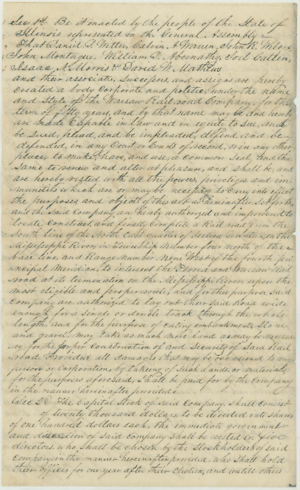 Sec 1st. Be it enacted by the people of the State of
Illinois represented in the General Assembly
That Daniel S. Witter, Calvin A. Warren, John R. Wilcox
John Montague, William H. Roosevelt, Joel Catlin,
Isaac N. Morris & David W. Mathews
and their associates, Successors and assigns are hereby
created a body Corporate and politic, under the name
and Style of the Warsaw Rail road Company, for the
term of fifty years, and by that name may be and
shall be Capable in law and in equity to sue, and
be sued, plead, and be impleaded, defend and be
defended, in any Court or Courts of record, or in any other
place, to make, have, and use, a common Seal, and the
Same to renew and alter at pleasure, and Shall be and
are hereby vested with all the powers, privileges and
immunities which are or may be necessary to carry into effect
the purposes and objects of this act as hereinafter set forth,
and the Said Company are hereby authorized and empowered to
locate, Construct and finally Complete a Rail road from the
Mississippi River in Township Number four north of the
base line, and Range Number Nine West of the fourth
principal Meridian, to intersect the Peoria and Warsaw Rail
road at its termination on the Mississippi River upon the
most eligible and proper route, and for this purpose said
Company are authorized to lay out their said Road wide
enough for a single or double track through the whole
length, and for the purpose of cutting embankments, Stone
and gravel may take as much more land as may be
necessary for the proper construction and Security of Said Rail
road Provided all damages that may be occasioned to any
person or corporation by taking of Such Lands or materials
for the purposes aforesaid, Shall be paid for by the Company
in the manner hereinafter provided.
Sec 2d. The Capital Stock of said Company shall consist
of twenty thousand dollars to be divided into shares
of one hundred dollars each, the immediate government
and direction of said Company shall be vested in five
directors who shall be chosen by the Stockholders of said
Company in the manner hereinafter provided, who shall hold
their offices for one year after their election, and until others